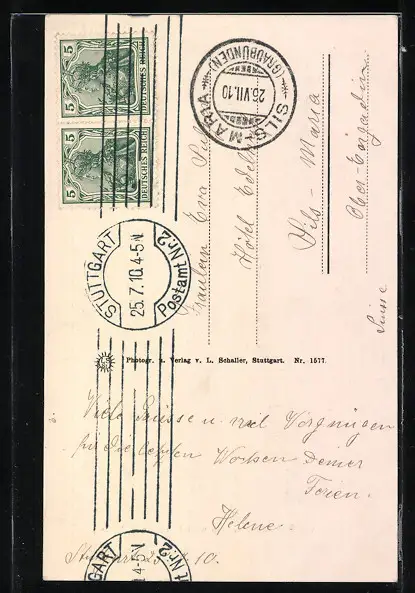 5
DEUTSCHES REICH
5
DEUTSCHES REICH
SILS-MARIA
(GRAUBÜNDEN)
26.VII.10
STUTTGART
25.7.10.4-5N.
Postamt Nr.2
Fräulein Eva
Hôtel Edelweiss
Sils-Maria
Ober-Engadin
Suisse
Photogr. u. Verlag v. L. Schaller, Stuttgart. Nr. 1577.
Viele Grüsse u. viel Vergnügen
für die letzten Wochen Deiner
Ferien.
Helene.
Stuttgart 25. 7. 10.
GART
4-5N
t Nr.2